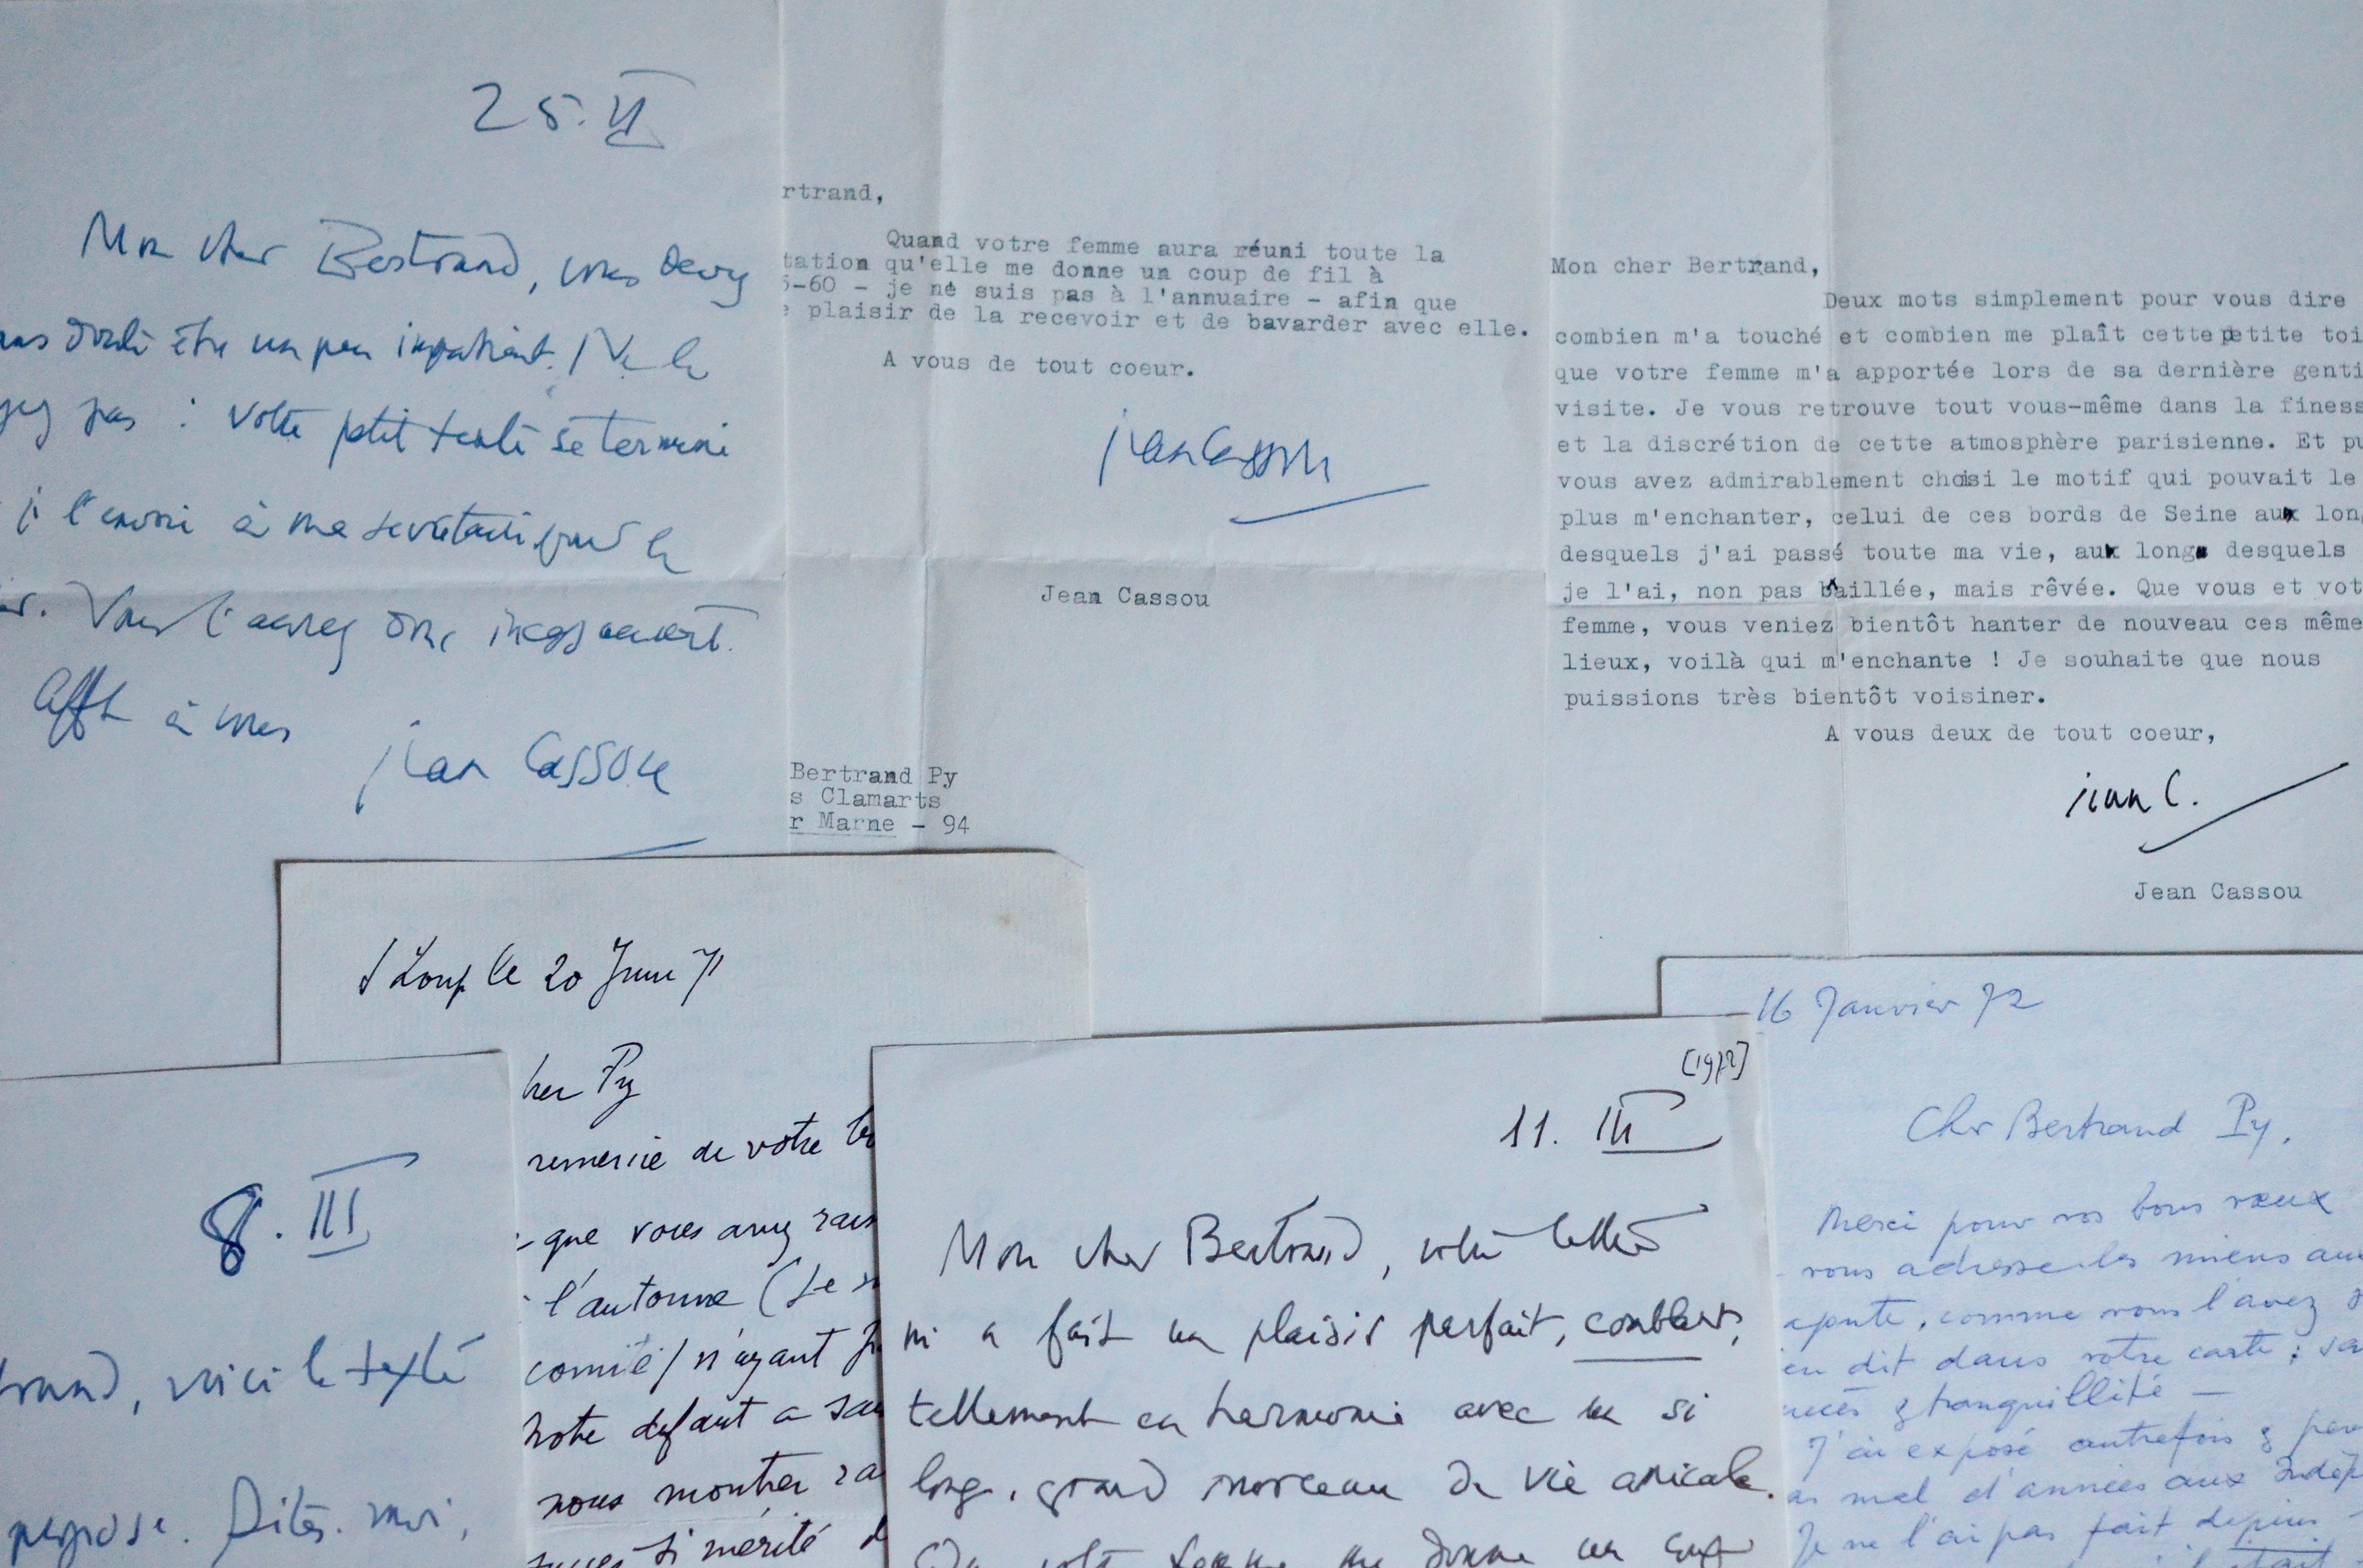 25.VI
Mon cher Bertrand, vous devez
être un peu impatient. Ne le
pas : votre petit texte se termine
je l'envoie à ma secrétaire pour le
Vous l'aurez donc incessamment.
Afft à vous
Jean Cassou
rtrand,
Quand votre femme aura réuni toute la
tation qu'elle me donne un coup de fil à
5-60 - je ne suis pas à l'annuaire - afin que
e plaisir de la recevoir et de bavarder avec elle.
A vous de tout coeur.
Jean Cassou
Jean Cassou
Bertrand Py
s Clamarts
r Marne - 94
Mon cher Bertrand,
Deux mots simplement pour vous dire
combien m'a touché et combien me plaît cette petite toi
que votre femme m'a apportée lors de sa dernière genti
visite. Je vous retrouve tout vous-même dans la finess
et la discrétion de cette atmosphère parisienne. Et pu
vous avez admirablement choisi le motif qui pouvait le
plus m'enchanter, celui de ces bords de Seine au lon
desquels j'ai passé toute ma vie, au long desquels
je l'ai, non pas bâillée, mais rêvée. Que vous et vot
femme, vous veniez bientôt hanter de nouveau ces même
lieux, voilà qui m'enchante ! Je souhaite que nous
puissions très bientôt voisiner.
A vous deux de tout coeur,
Jean C.
Jean Cassou
S Loup le 20 Juin 71
her Py
remercie de votre
que vous avez
l'automne (Le
comité) n'ayant
notre défaut a
nous montrer
si mérité d
8.III
trand, voici le texte
propose. Dites-moi,
[1972]
11. III
Mon cher Bertrand, votre lettre
m'a fait un plaisir parfait, comblant,
tellement en harmonie avec un si
long, grand morceau de vie amicale.
votre femme me donne un coup
16 Janvier 72
Cher Bertrand Py,
Merci pour vos bons vœux
vous adresse les miens
ajoute, comme vous l'avez
en dit dans votre carte ;
& tranquillité —
J'ai exposé autrefois &
mal d'années aux Indép
Je ne l'ai pas fait depuis